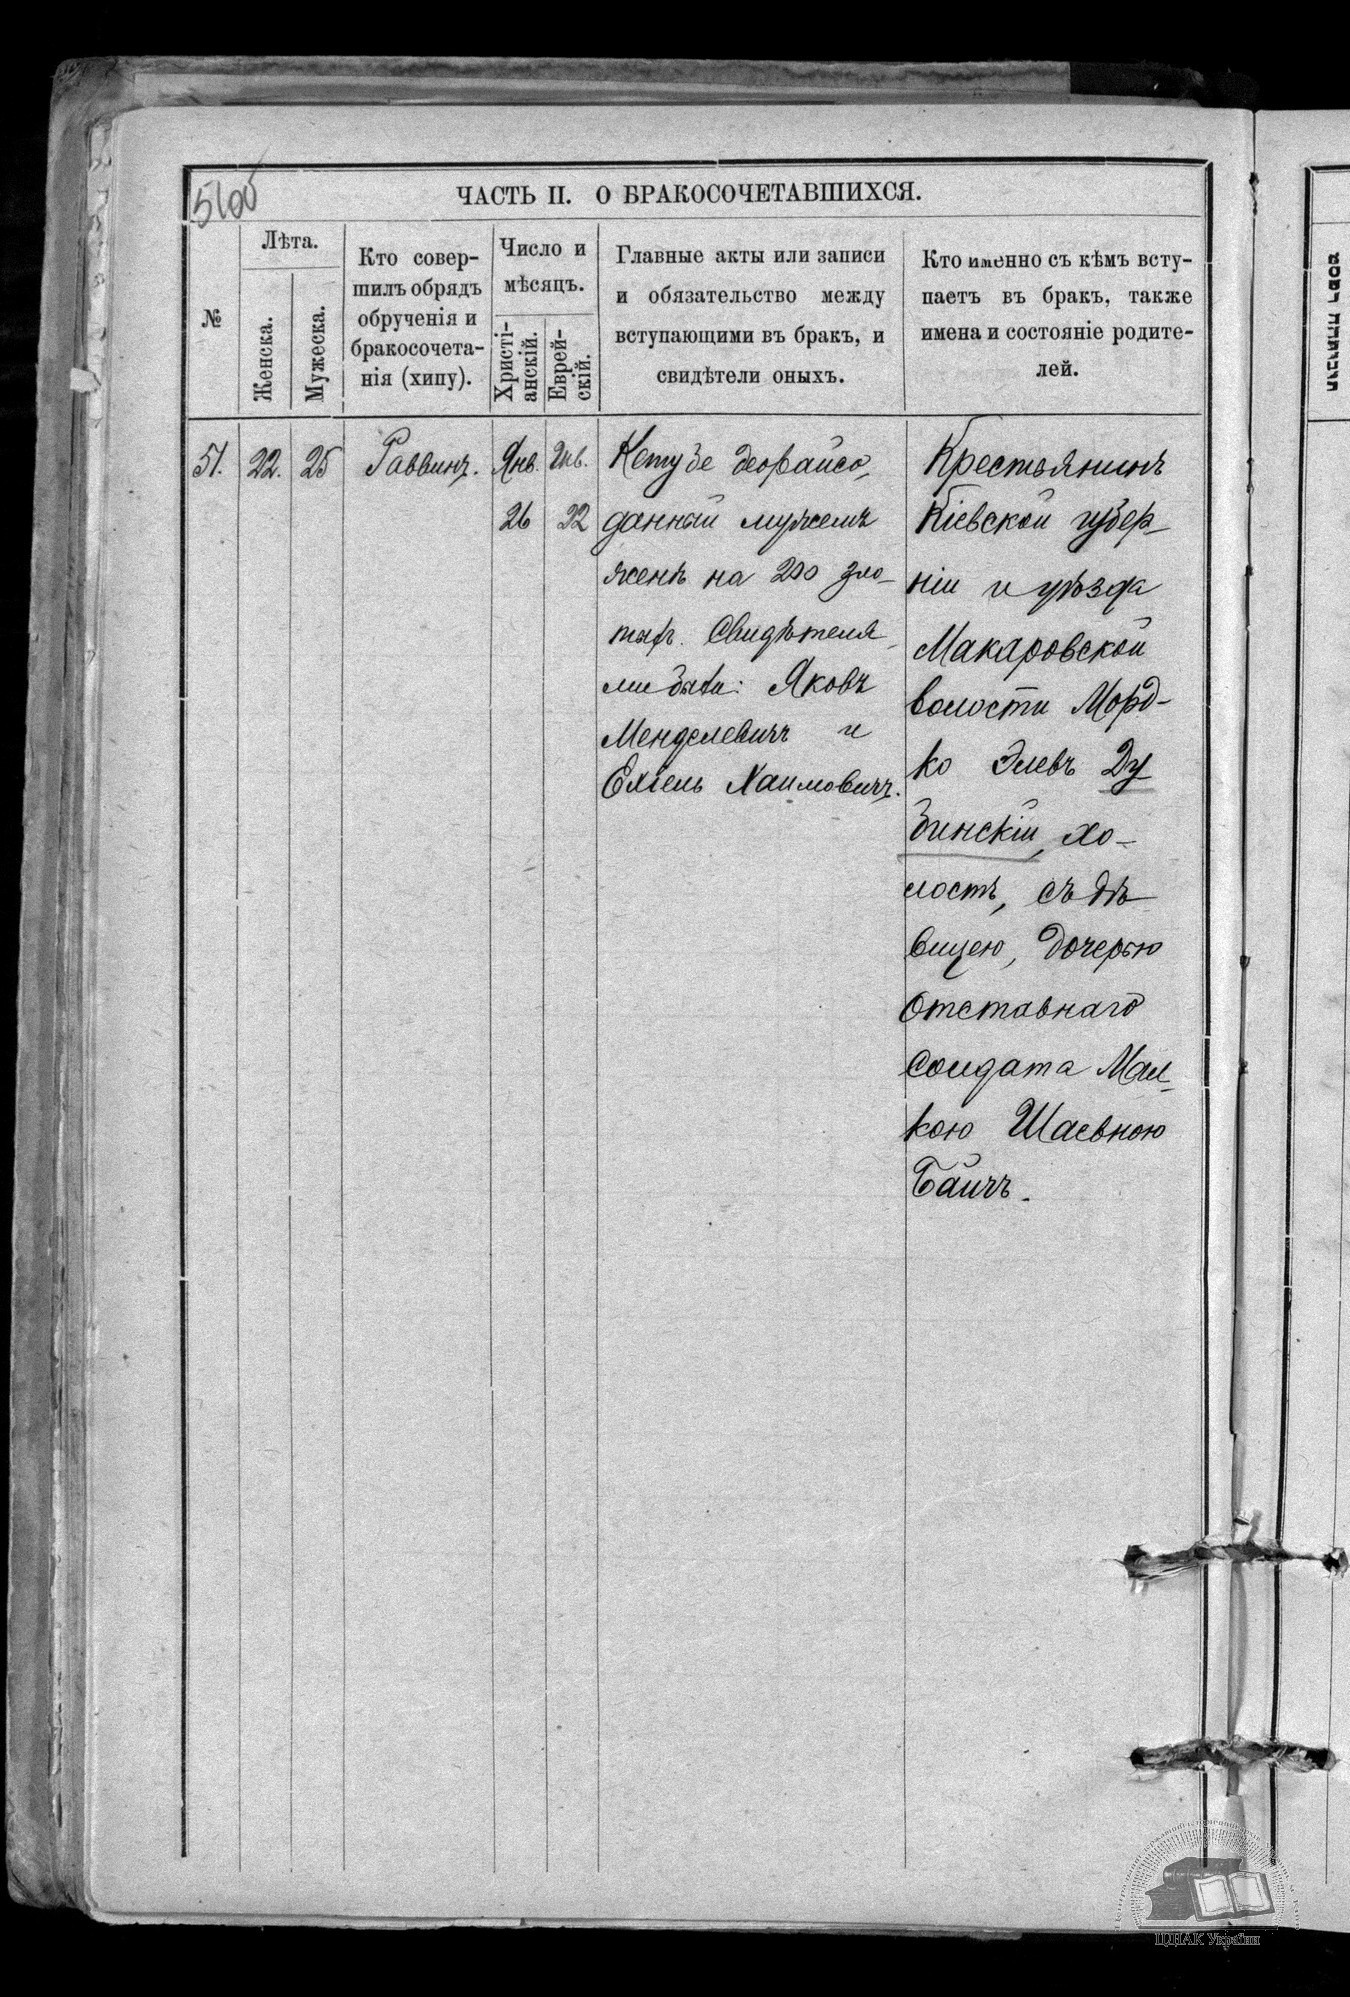 ЧАСТЬ II. О БРАКОСОЧЕТАВШИХСЯ.
№
Лѣта.
Женска.
Мужеска.
Кто совер-
шилъ обрядъ
обрученія и
бракосочета-
нія (хипу).
Число и
мѣсяцъ.
Христі-
анскій.
Еврей-
скій.
Главные акты или записи
и обязательство между
вступающими въ бракъ, и
свидѣтели оныхъ.
Кто именно съ кѣмъ всту-
паетъ въ бракъ, также
имена и состояніе родите-
лей.
51.
22.
25
Раввинъ.
Янв.
26
22
Кетубе деорайсо,
данной мужемъ
женѣ на 200 зло-
тыхъ. Свидѣтеля-
ми были: Яковъ
Менделевичъ и
Ехіель Хаимовичъ.
Крестьянинъ
Кіевской губер-
ніи и уѣзда
Макаровской
волости Морд-
ко Элевъ Ду
бинскій, хо-
лостъ, съ дѣ-
вицею, дочерью
отставнаго
солдата Мал-
кою Шаевною
Баичъ.
ЦДІАК України